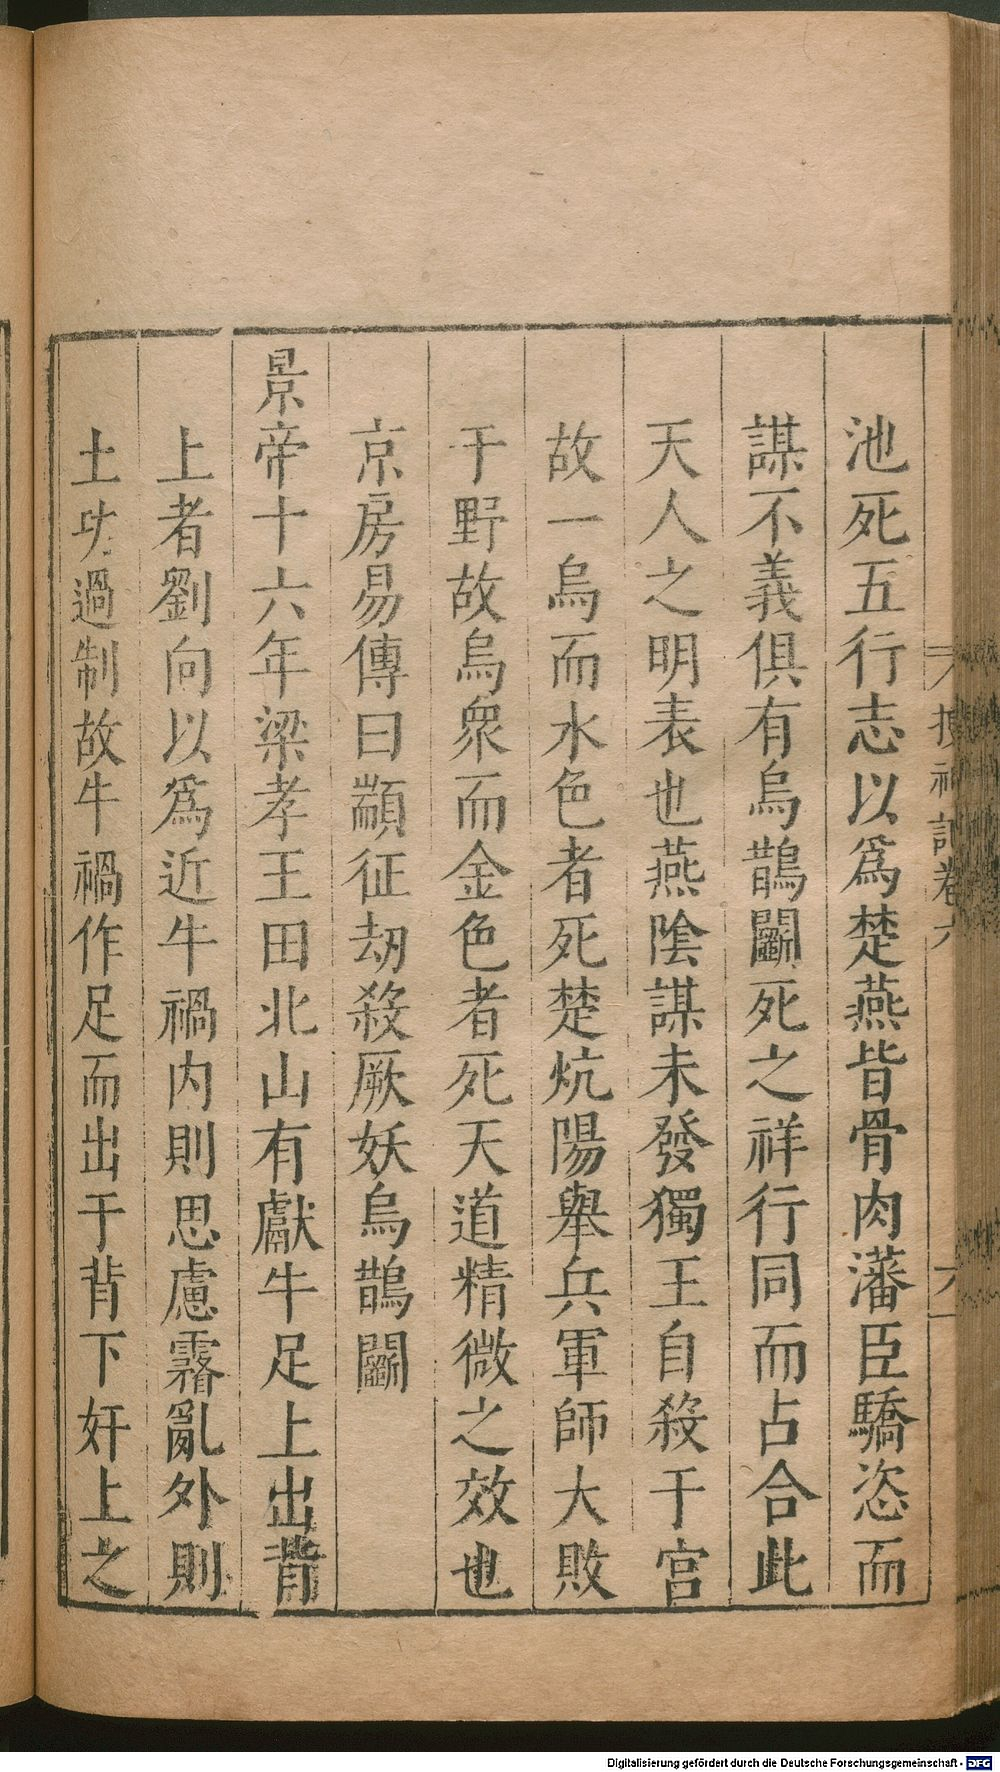 池死五行志以爲楚燕皆骨肉藩臣驕恣而
謀不義俱有烏鵲鬬死之祥行同而占合此
天人之明表也燕陰謀未發獨王自殺于宮
故一烏而水色者死楚炕陽舉兵軍師大敗
于野故烏衆而金色者死天道精微之效也
京房易傳曰顓征劫殺厥妖烏鵲鬬
景帝十六年梁孝王田北山有獻牛足上出背
上者劉向以爲近牛禍内則思慮霿亂外則
土功過制故牛禍作足而出于背下奸上之
搜神記卷六
六
Digitalisierung gefördert durch die Deutsche Forschungsgemeinschaft - DFG